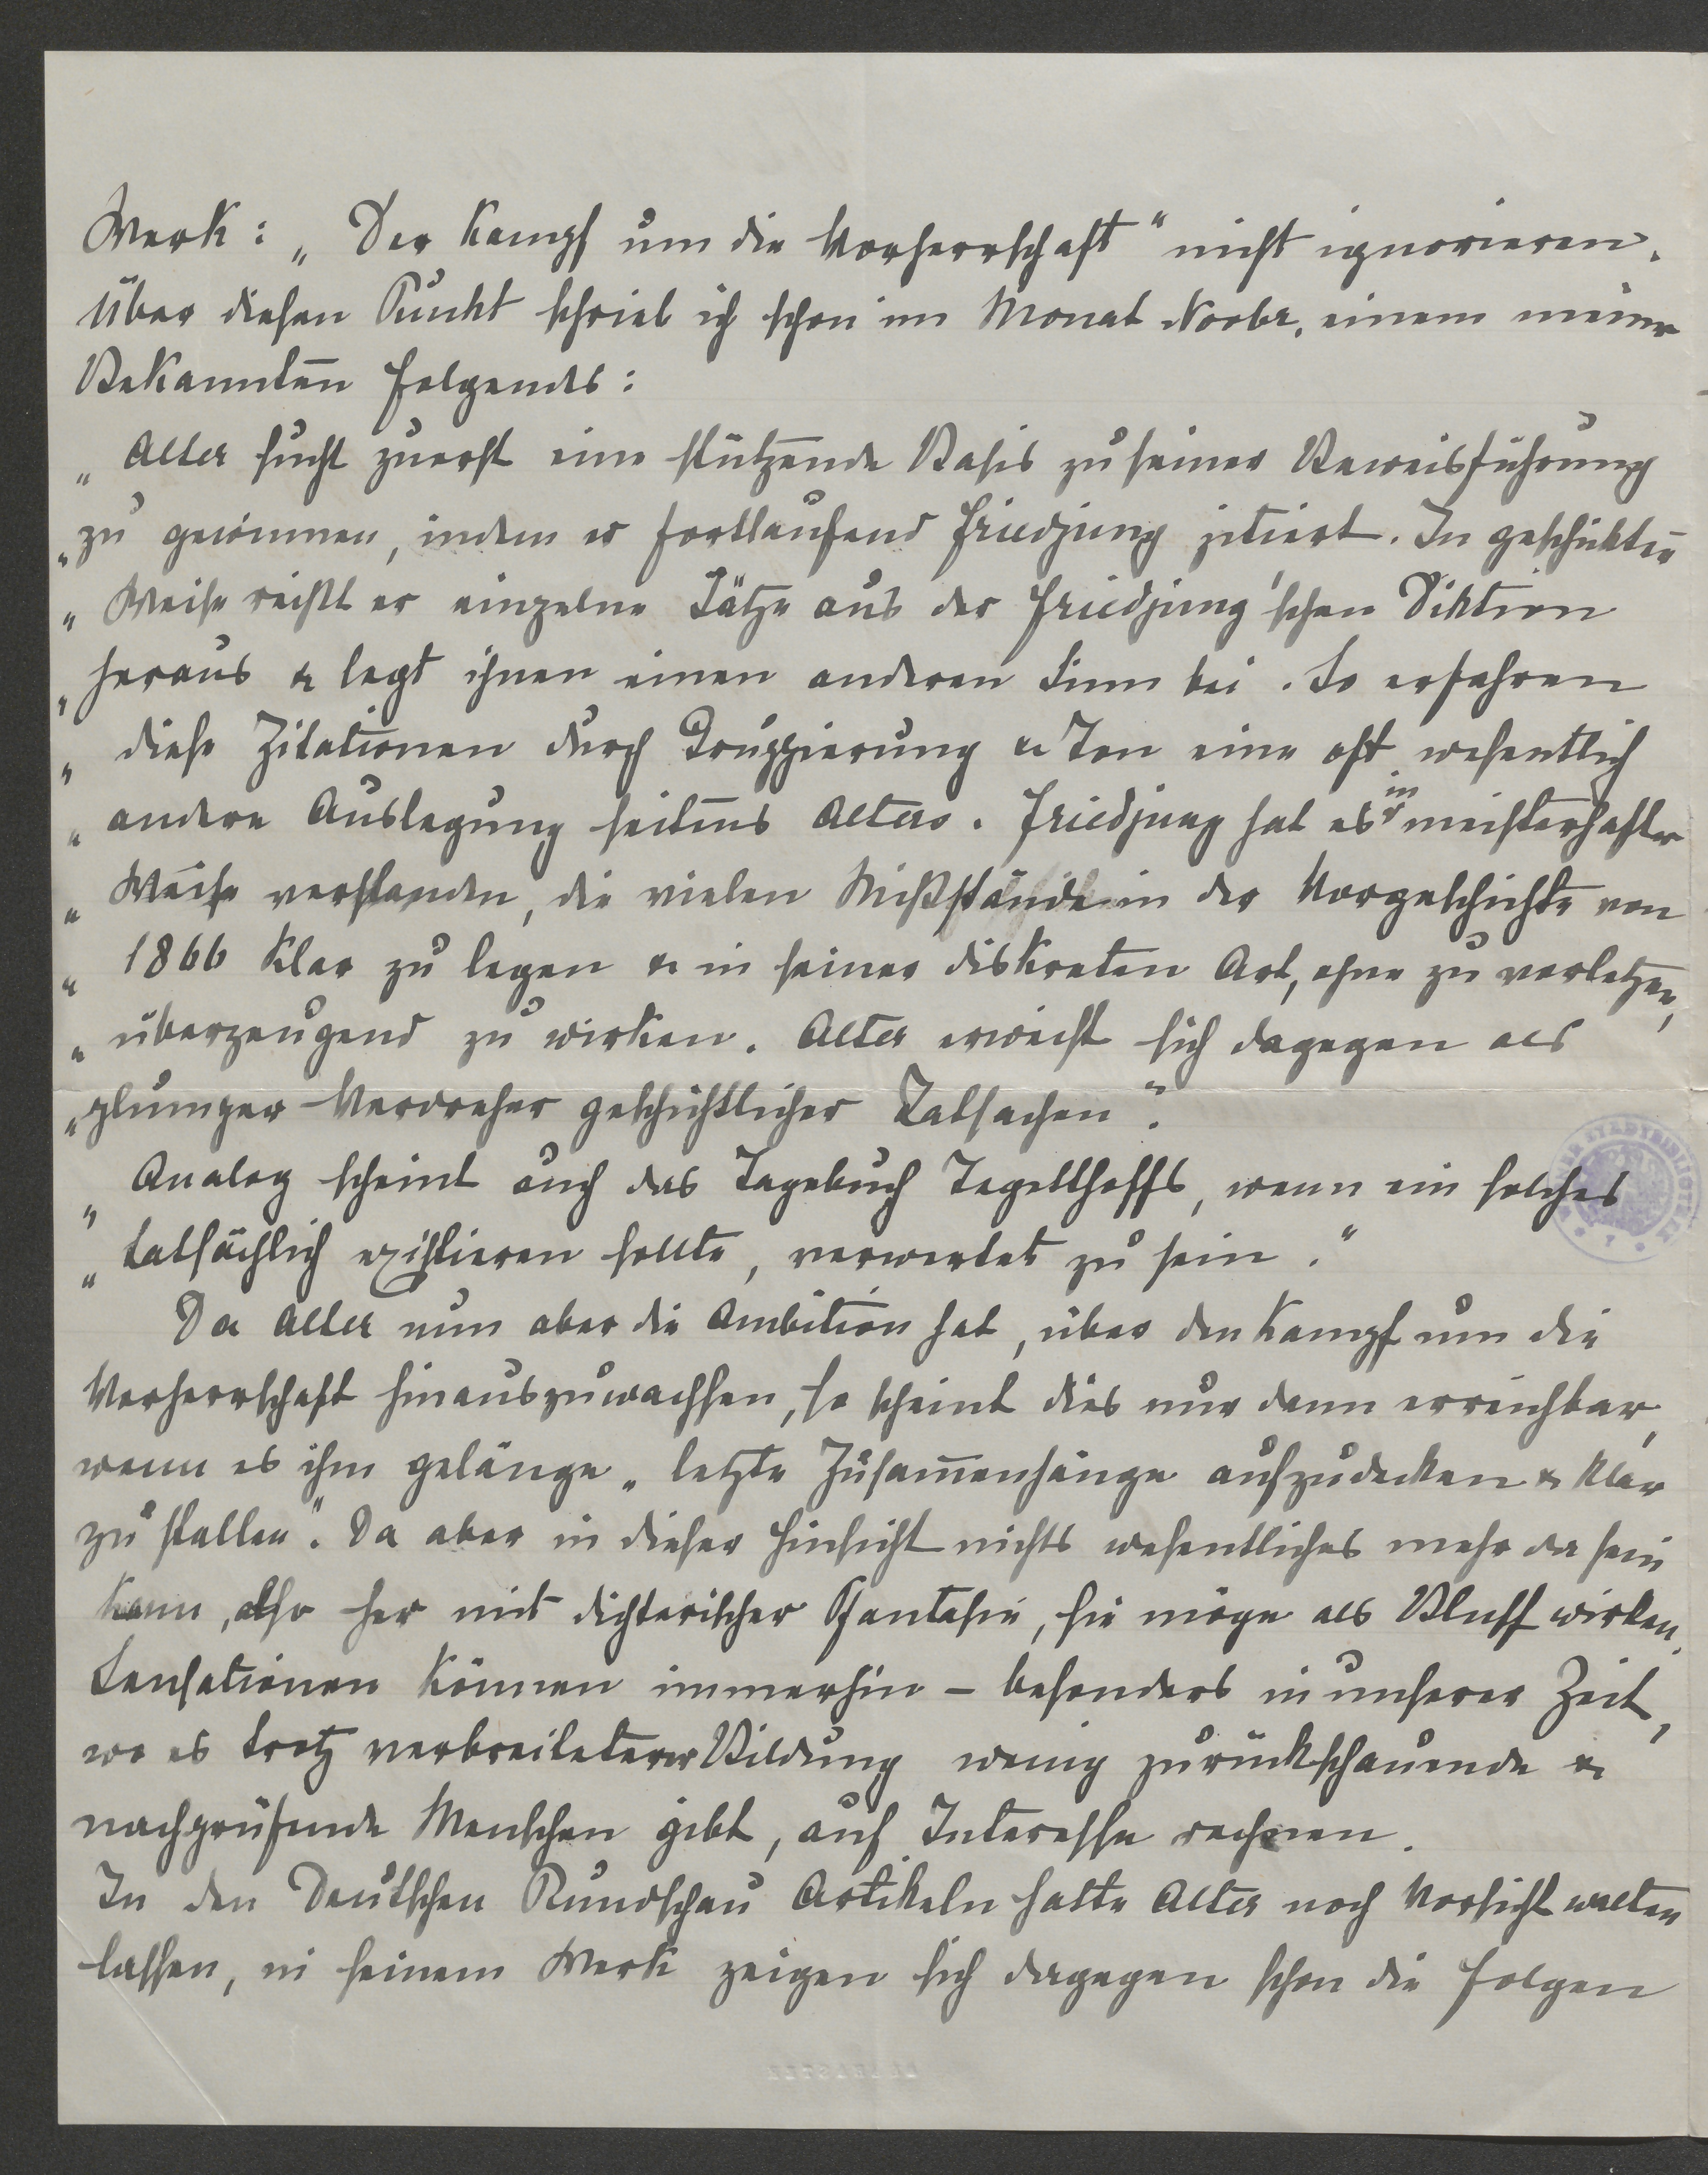 Werk: „Der Kampf um die Vorherrschaft“ nicht ignorieren.
Über diesen Punkt schrieb ich schon im Monat Novbr. einem meiner
Bekannten folgendes:
„Alter sucht zuerst eine stützende Basis zu seiner Beweisführung
„zu gewinnen, indem er fortlaufend Friedjung zitiert. In geschickter
„Weise reißt er einzelne Sätze aus der Friedjung'schen Diktion
„heraus & legt ihnen einen anderen Sinn bei. So erfahren
„diese Zitationen durch Gruppierung & Ton eine oft wesentlich
„andere Auslegung seitens Alters. Friedjung hat es in meisterhafter
„Weise verstanden, die vielen Mißstände in der Vorgeschichte von
„1866 klar zu legen & in seiner diskreten Art, ohne zu verletzen,
„überzeugend zu wirken. Alter erweist sich dagegen als
„plumper Verdreher geschichtlicher Tatsachen“.
„Analog scheint auch das Tagebuch Tegetthoffs, wenn ein solches
„tatsächlich existieren sollte, verwertet zu sein.“
Da Alter nun aber die Ambition hat, über den Kampf um die
Vorherrschaft hinauszuwachsen, so scheint dies nur dann erreichbar,
wenn es ihm gelänge „letzte Zusam̅enhänge aufzudecken & klar
zu stellen“. Da aber in dieser Hinsicht nichts wesentliches mehr da sein
kann, also her mit dichterischer Phantasie, sie möge als Bluff wirken.
Sensationen können immerhin – besonders in unserer Zeit,
wo es trotz verbreiteterer Bildung wenig zurückschauende &
nachprüfende Menschen gibt, auf Interesse rechnen.
In den Deutschen Rundschau Artikeln hatte Alter noch Vorsicht walten
lassen, in seinem Werk zeigen sich dagegen schon die Folgen